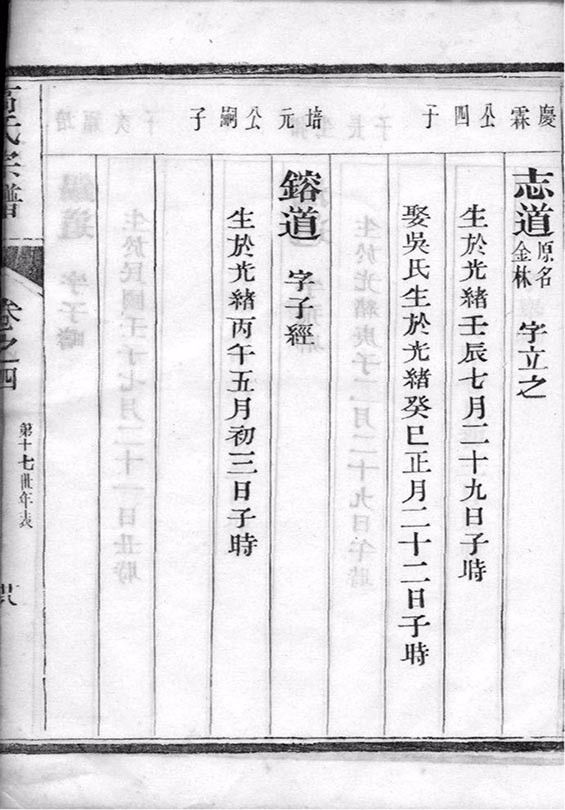 慶霖公四子
志道 原名金林 字立之
生於光緒壬辰七月二十九日子時
娶吳氏生於光緒癸巳正月二十二日子時
培元公嗣子
鎔道 字子經
生於光緒丙午五月初三日子時
氏宗譜
卷之四
第十七世年表